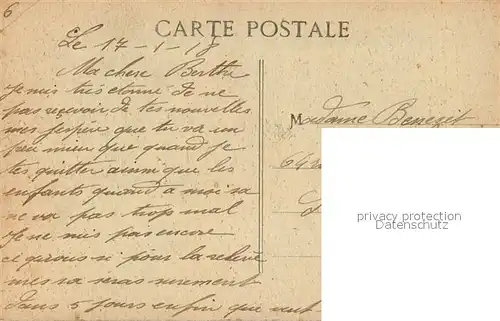 6
CARTE POSTALE
Le 17-1-18
Ma chere Berthe
Je suis très étonné de ne
pas reçevoir de tes nouvelles
mes j'espère que tu va un
peu mieu que quand je
tes quitter ainsi que les
enfants quand a moi sa
ne va pas trop mal
Je ne suis pas encore
si pour la relève
mes sa seras surement
dans 5 jours enfin que
Madame Benezit
64
privacy protection
Datenschutz